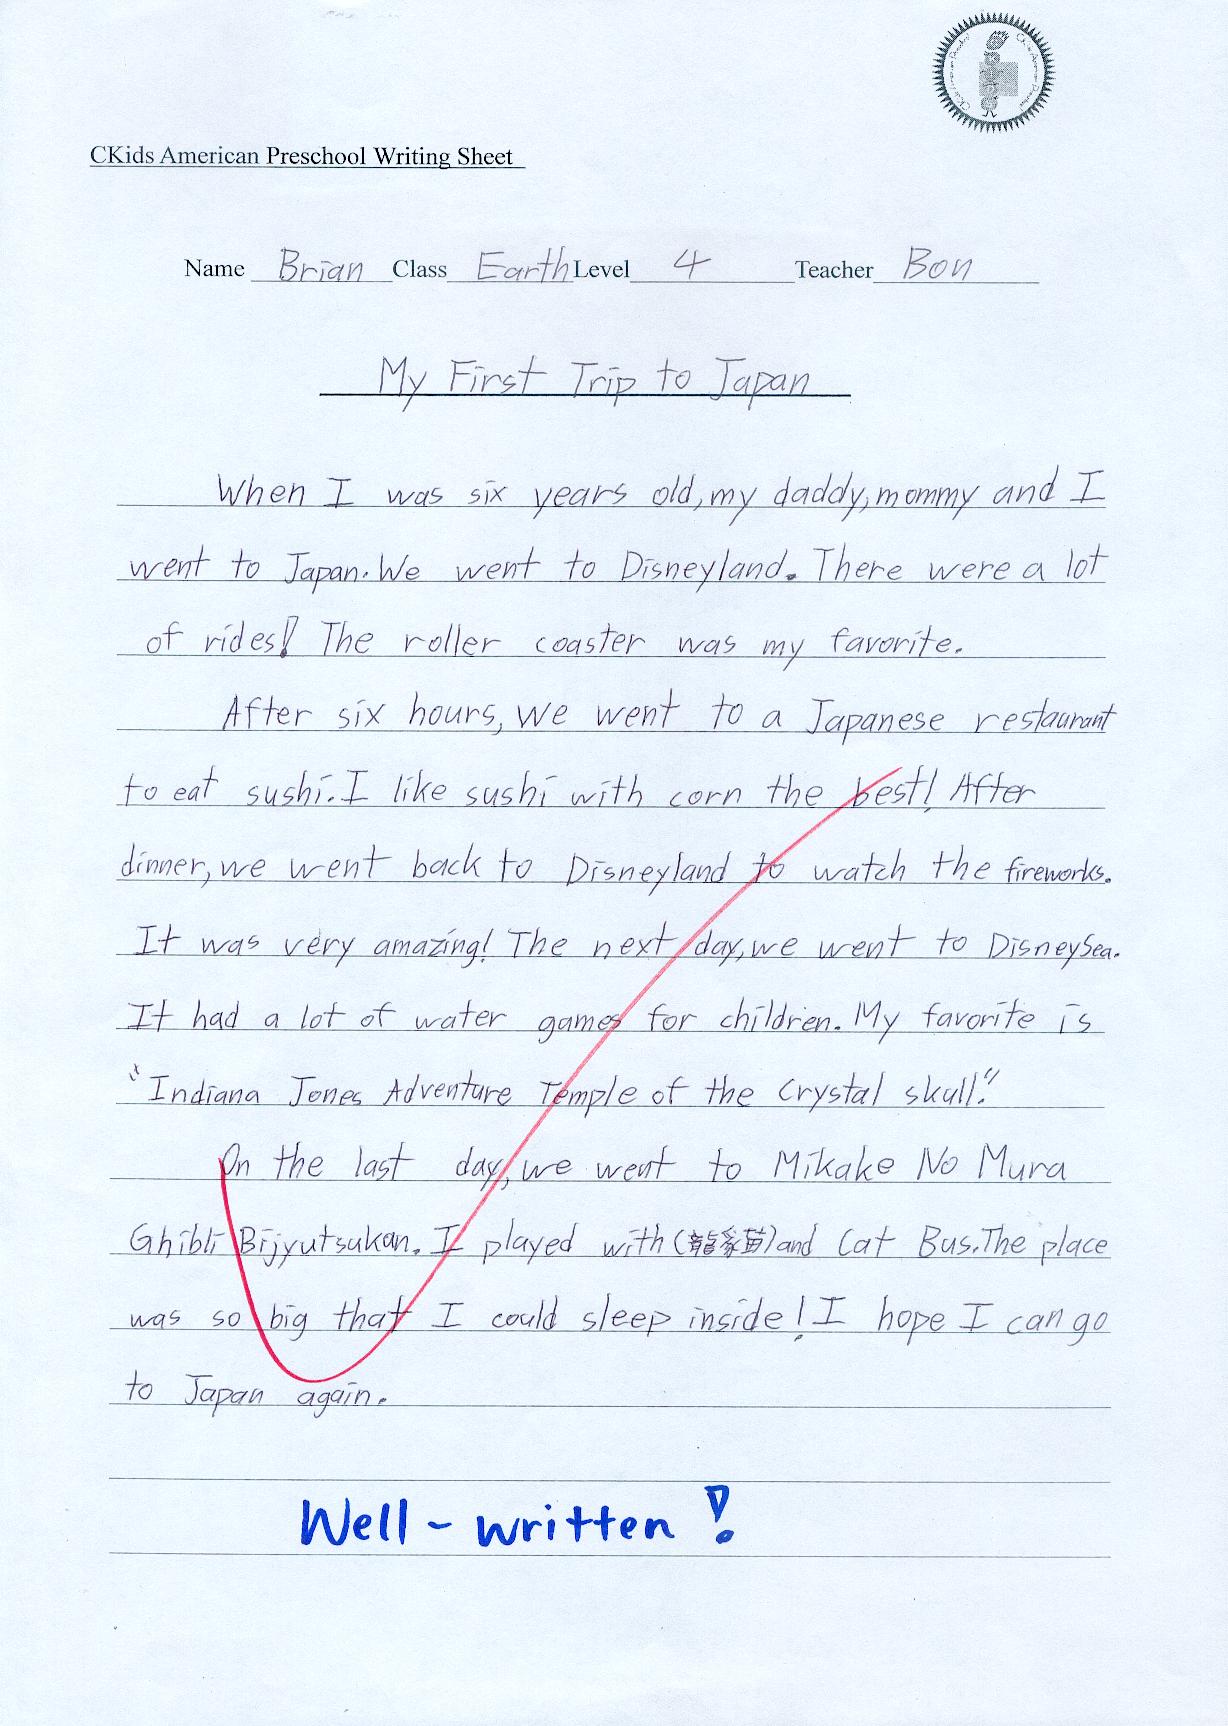 CKids American Preschool Writing Sheet
Name Brian Class Earth Level 4 Teacher Bon
My First Trip to Japan
When I was six years old, my daddy, mommy and I
went to Japan. We went to Disneyland. There were a lot
of rides! The roller coaster was my favorite.
After six hours, we went to a Japanese restaurant
to eat sushi. I like sushi with corn the best! After
dinner, we went back to Disneyland to watch the fireworks.
It was very amazing! The next day, we went to DisneySea.
It had a lot of water games for children. My favorite is
"Indiana Jones Adventure Temple of the Crystal skull."
On the last day, we went to Mikake No Mura
Ghibli Bijyutsukan. I played with (龍貓) and Cat Bus. The place
was so big that I could sleep inside! I hope I can go
to Japan again.
Well-written!